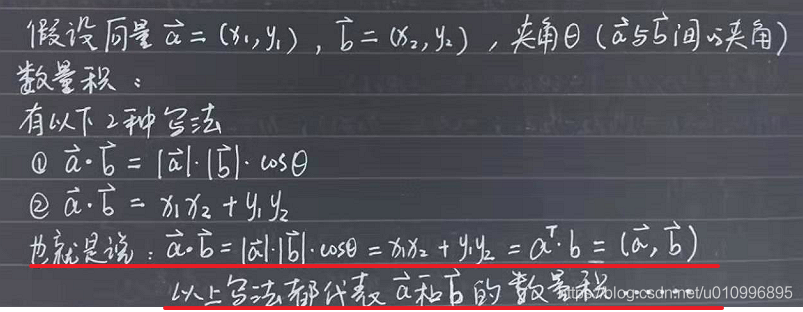 假设向量 a⃗ = (x₁,y₁) , b⃗ = (x₂,y₂) , 夹角θ (a⃗与b⃗间の夹角)
数量积：
有以下2种写法
① a⃗·b⃗ = |a⃗|·|b⃗|·cosθ
② a⃗·b⃗ = x₁x₂ + y₁y₂
也就是说：a⃗·b⃗ = |a⃗|·|b⃗|·cosθ = x₁x₂ + y₁y₂ = aᵀ·b = (a⃗, b⃗)
以上写法都代表 a⃗和b⃗的数量积......
https://blog.csdn.net/u010996895